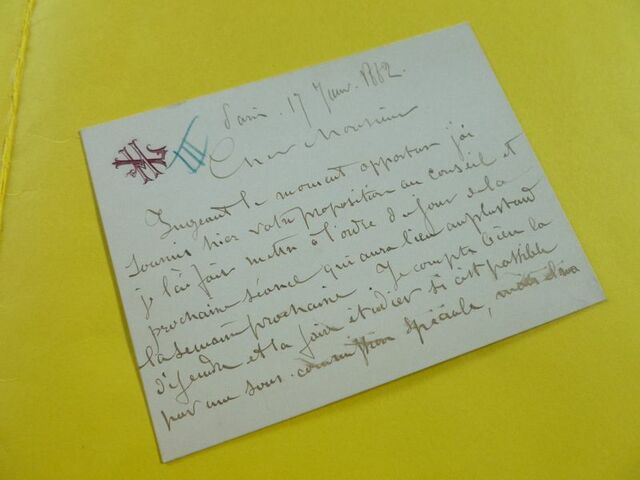 Paris. 17 Janv. 1882.
Cher Monsieur
III
Jugeant le moment opportun j'ai
soumis hier votre proposition au conseil et
je l'ai fait mettre à l'ordre du jour de la
prochaine séance qui aura lieu au plus tard
la semaine prochaine. Je compte bien la
défendre et la faire étudier si c'est possible
par une sous-commission spéciale,